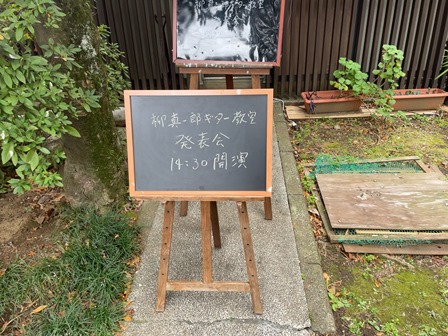 柳真一郎ギター教室
発表会
14:30開演